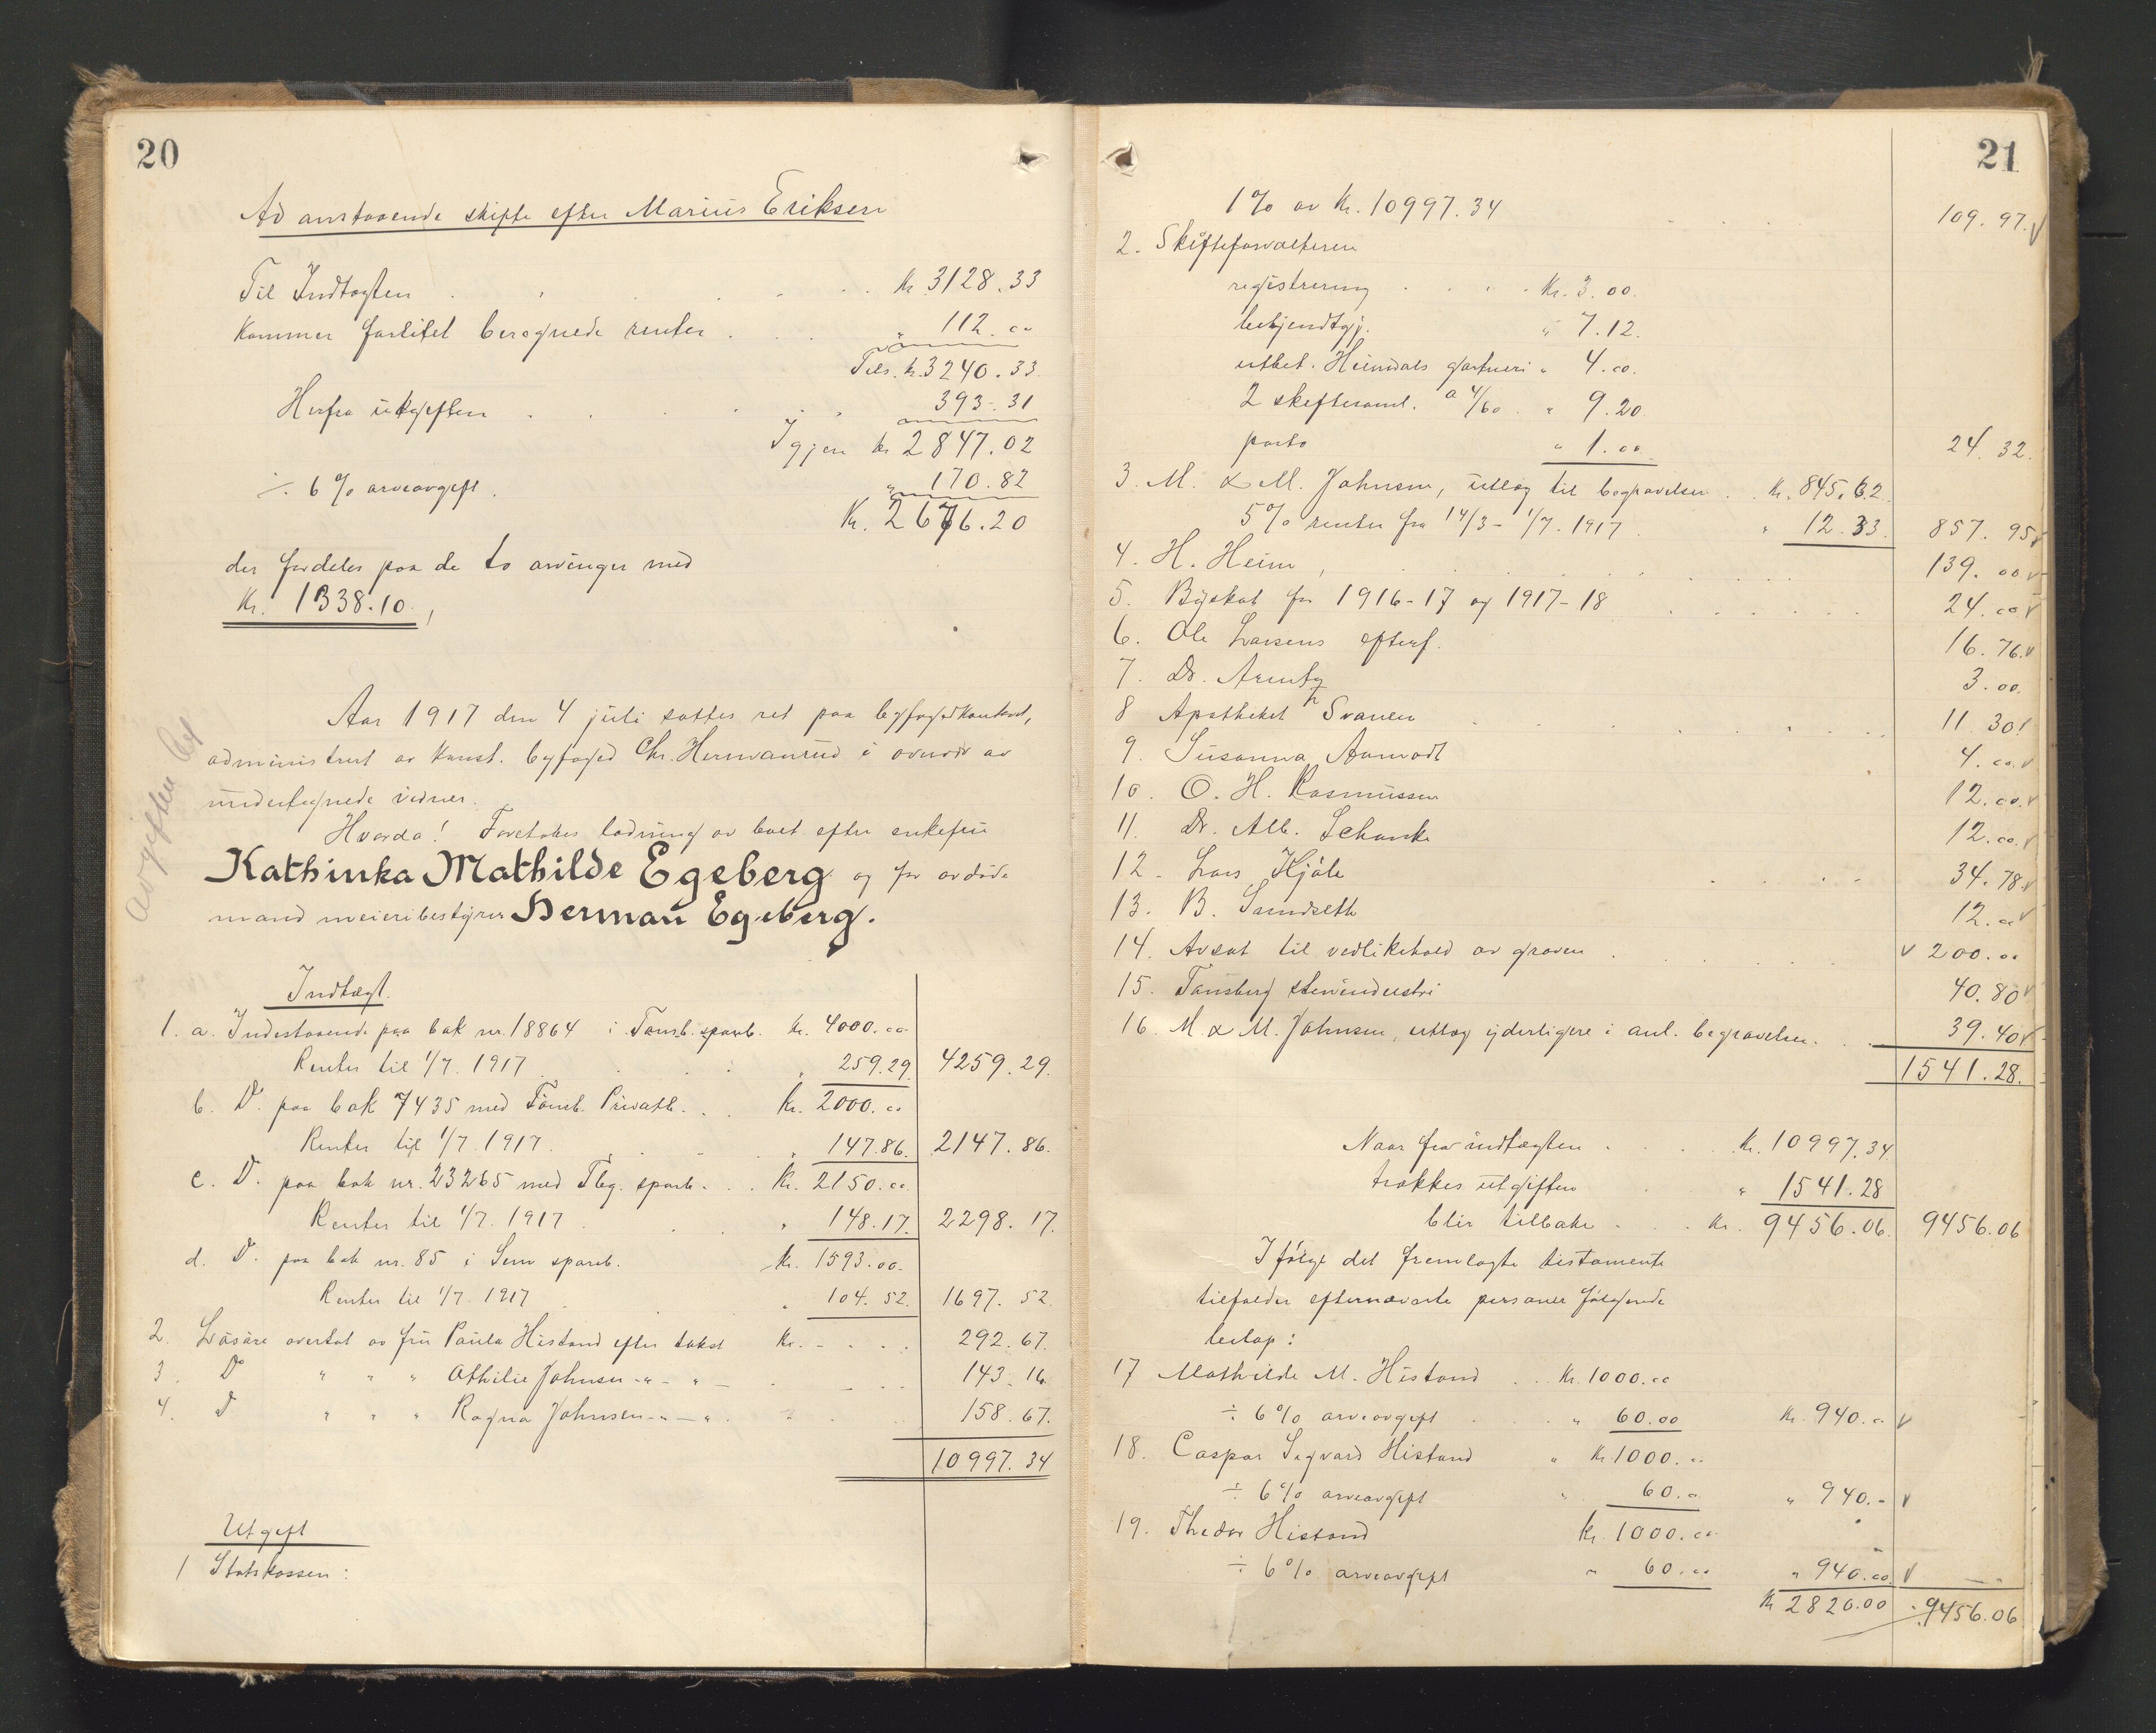 20
Ad anstaaende skifte efter Marius Eriksen
Til Indtægten . . . . kr. 3128.33
kommer foreløbet beregnede renter . . . " 112.00
Tils. kr. 3240.33
Herfra utgiften . . . . 393.31
Igjen kr 2847.02
÷ 6 % arveavgift . " 170.82
Kr. 2676.20
der fordeles paa de to arvinger med
Kr. 1338.10.
Aar 1917 den 4 juli sattes ret paa byfogedkontoret,
administrert av konst. byfoged Chr. Hermanrud i overvær av
undertegnede vidner.
Hvorda! Foretokes lodning av boet efter enkefru
Kathinka Mathilde Egeberg og før avdøde
mand meieribestyrer Herman Egeberg.
Avgiften
Indtægt.
1. a. Indestaaende paa bok nr. 18864 i Tønsb. spareb. kr. 4000.00
Renter til 1/7. 1917 . . . " 259.29 4259.29.
b. Do. paa bok 7435 med Tønsb. Privatb. . . Kr. 2000.00
Renter til 1/7. 1917. . . . " 147.86. 2147.86.
c. Do. paa bok nr. 23265 med Tbg. spareb. . . Kr. 2150.00
Renter til 1/7. 1917 . . " 148.17. 2298.17.
d. Do. paa bok nr. 85 i Sem spareb. Kr. 1593.00.
Renter til 1/7. 1917 . " 104.52. 1697.52.
2. Løsøre overtat av fru Paula Histand efter takst Kr. - . . . 292.67.
3. Do " " " Othilie Johnsen -"- "- . . . . 143.16
4. Do " " " Ragna Johnsen -"- " . . . 158.67.
10997.34
Utgift
1 Statskassen:
21
1% av Kr. 10997.34 109.97.
2. Skifteforvalteren
registrering . . . . Kr. 3.00.
bekjendtgj. " 7.12.
utbet. Heimdals gartneri " 4.00.
2 skiftesaml. a 4/60 . " 9.20.
porto " 1.00. 24.32.
3. M. & M. Johnsen, utlæg til begravelsen . . Kr. 845.62.
5% renter fra 14/3 - 1/7. 1917 . " 12.33. 857.95
4. H. Heim, . . . . . 139.00
5. Byskat for 1916-17 og 1917-18 . . . . 24.00
6. Ole Larsens efterf. 16.76.
7. Dr. Arentz 3.00.
8 Apotheket Svanen . . . . 11.30
9. Susanna Aamodt 4.00.
10. O. H. Rasmussen 12.00.
11. Dr. Alb. Schanke 12.00.
12 - Lars Kjøle . . . . 34.78
13. B. Sundseth 12.00
14. Avsat til vedlikehold av graven . . . . 200.00
15. Tønsberg stenindustri 40.80
16. M & M. Johnsen, utlæg yderligere i anl. begravelsen. . . 39.40
1541.28.
Naar fra indtægten . . . Kr. 10997.34
trækkes utgiften . " 1541.28
blir tilbake . . . Kr. 9456.06. 9456.06
Ifølge det fremlagte testamente
tilfalder efternævnte personer følgende
beløp:
17 Mathilde M. Histand . . Kr. 1000.00
÷ 6% arveavgift . . " 60.00 Kr. 940.00
18. Caspar Sigvard Histand " Kr. 1000.00
÷ 6% arveavgift " 60.00 " 940.-
19. Thedor Histand Kr. 1000.00
÷ 6% arveavgift " 60.00 " 940.00
Kr 2820.00 9456.06